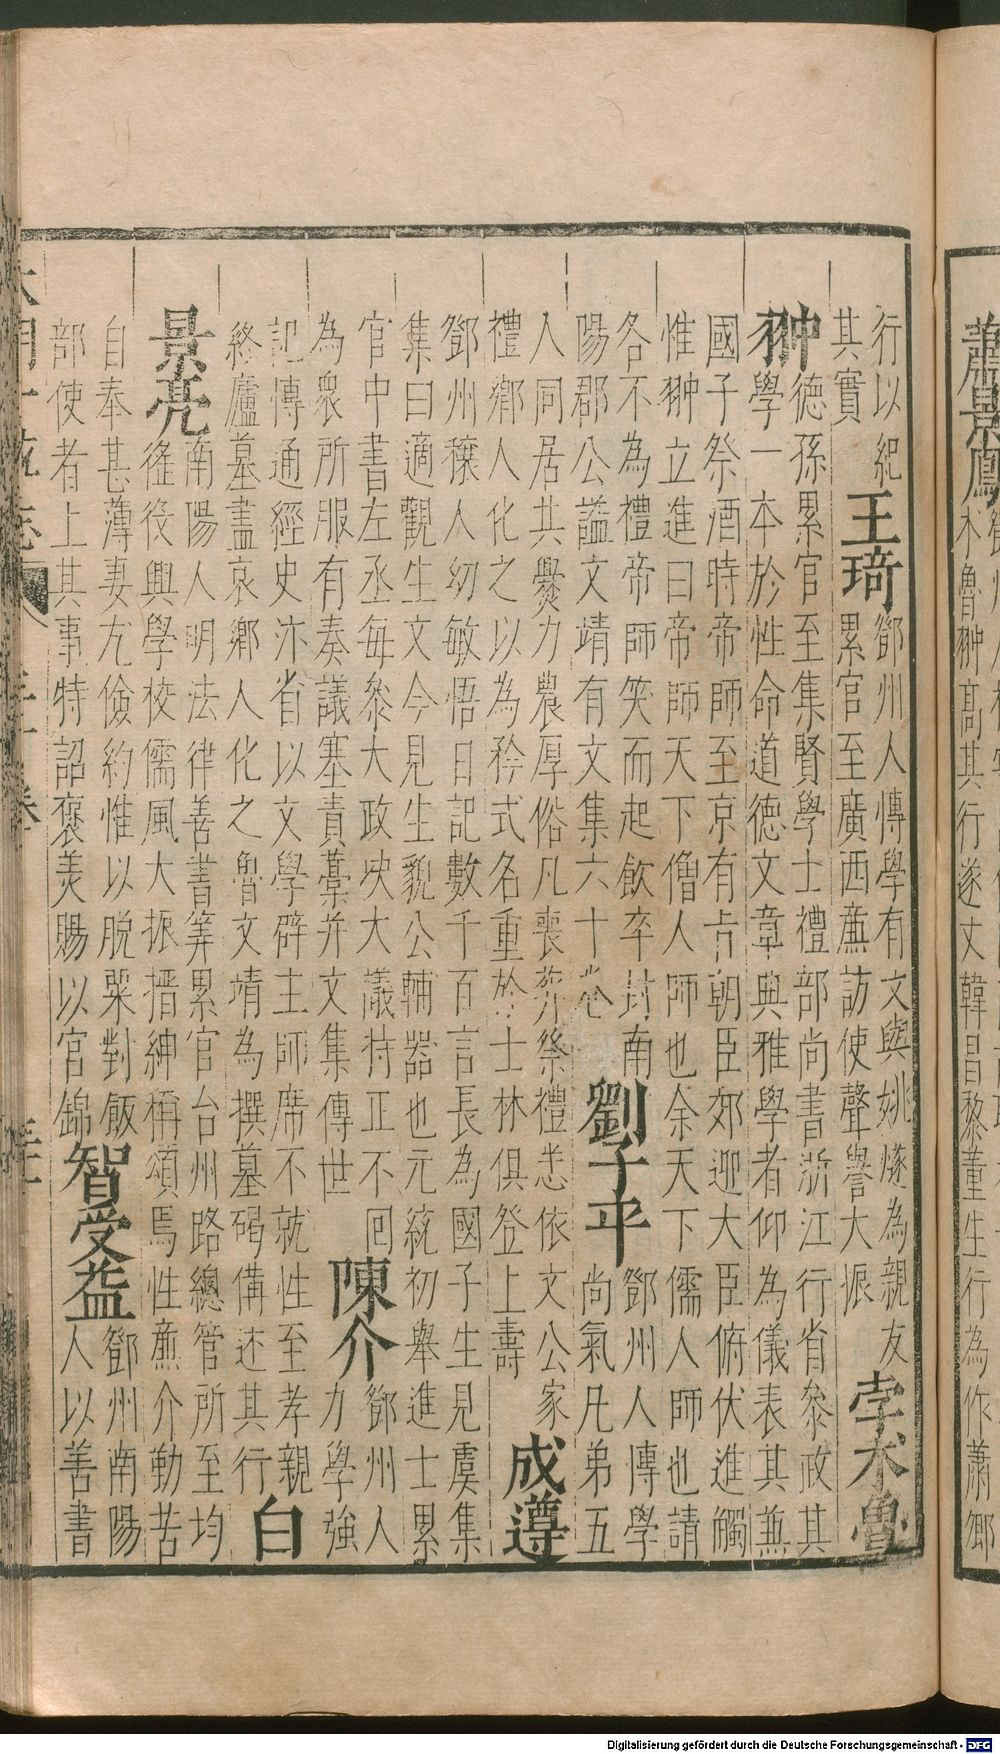 蕭景鳳
术魯翀髙其行遂丈韓昌黎董生行為作蕭鄉
行以紀
其實
王琦
鄧州人博學有文與姚燧為親友
累官至廣西廉訪使聲譽大振
孛术魯
翀
德孫累官至集賢學士禮部尚書浙江行省叅政其
學一本於性命道德文章典雅學者仰為儀表其兼
國子祭酒時帝師至京有㫖朝臣郊迎大臣俯伏進觴
惟翀立進曰帝師天下僧人師也余天下儒人師也請
各不為禮帝師笑而起飲卒封南
陽郡公謚文靖有文集六十卷
劉子平
鄧州人博學
尚氣凡弟五
人同居共㸑力農厚俗凡喪葬祭禮悉依文公家
禮鄉人化之以為矜式名重於士林俱登上壽
成遵
鄧州穰人幼敏悟日記數千百言長為國子生見虞集
集曰適觀生文今見生貌公輔器也元統初舉進士累
官中書左丞每叅大政决大議持正不回
為衆所服有奏議塞責藁并文集傳世
陳介
鄧州人
力學強
記博通經史亦省以文學辟主師席不就性至孝親
終廬墓盡哀鄉人化之魯文靖為撰墓碣備述其行
白
景亮
南陽人明法律善書筭累官台州路總管所至均
徭役興學校儒風大振搢紳稱頌焉性廉介勤苦
自奉甚薄妻尤儉約惟以脫粟對飯
部使者上其事特詔褒美賜以官錦
智受益
鄧州南陽
人以善書
Digitalisierung gefördert durch die Deutsche Forschungsgemeinschaft - DFG